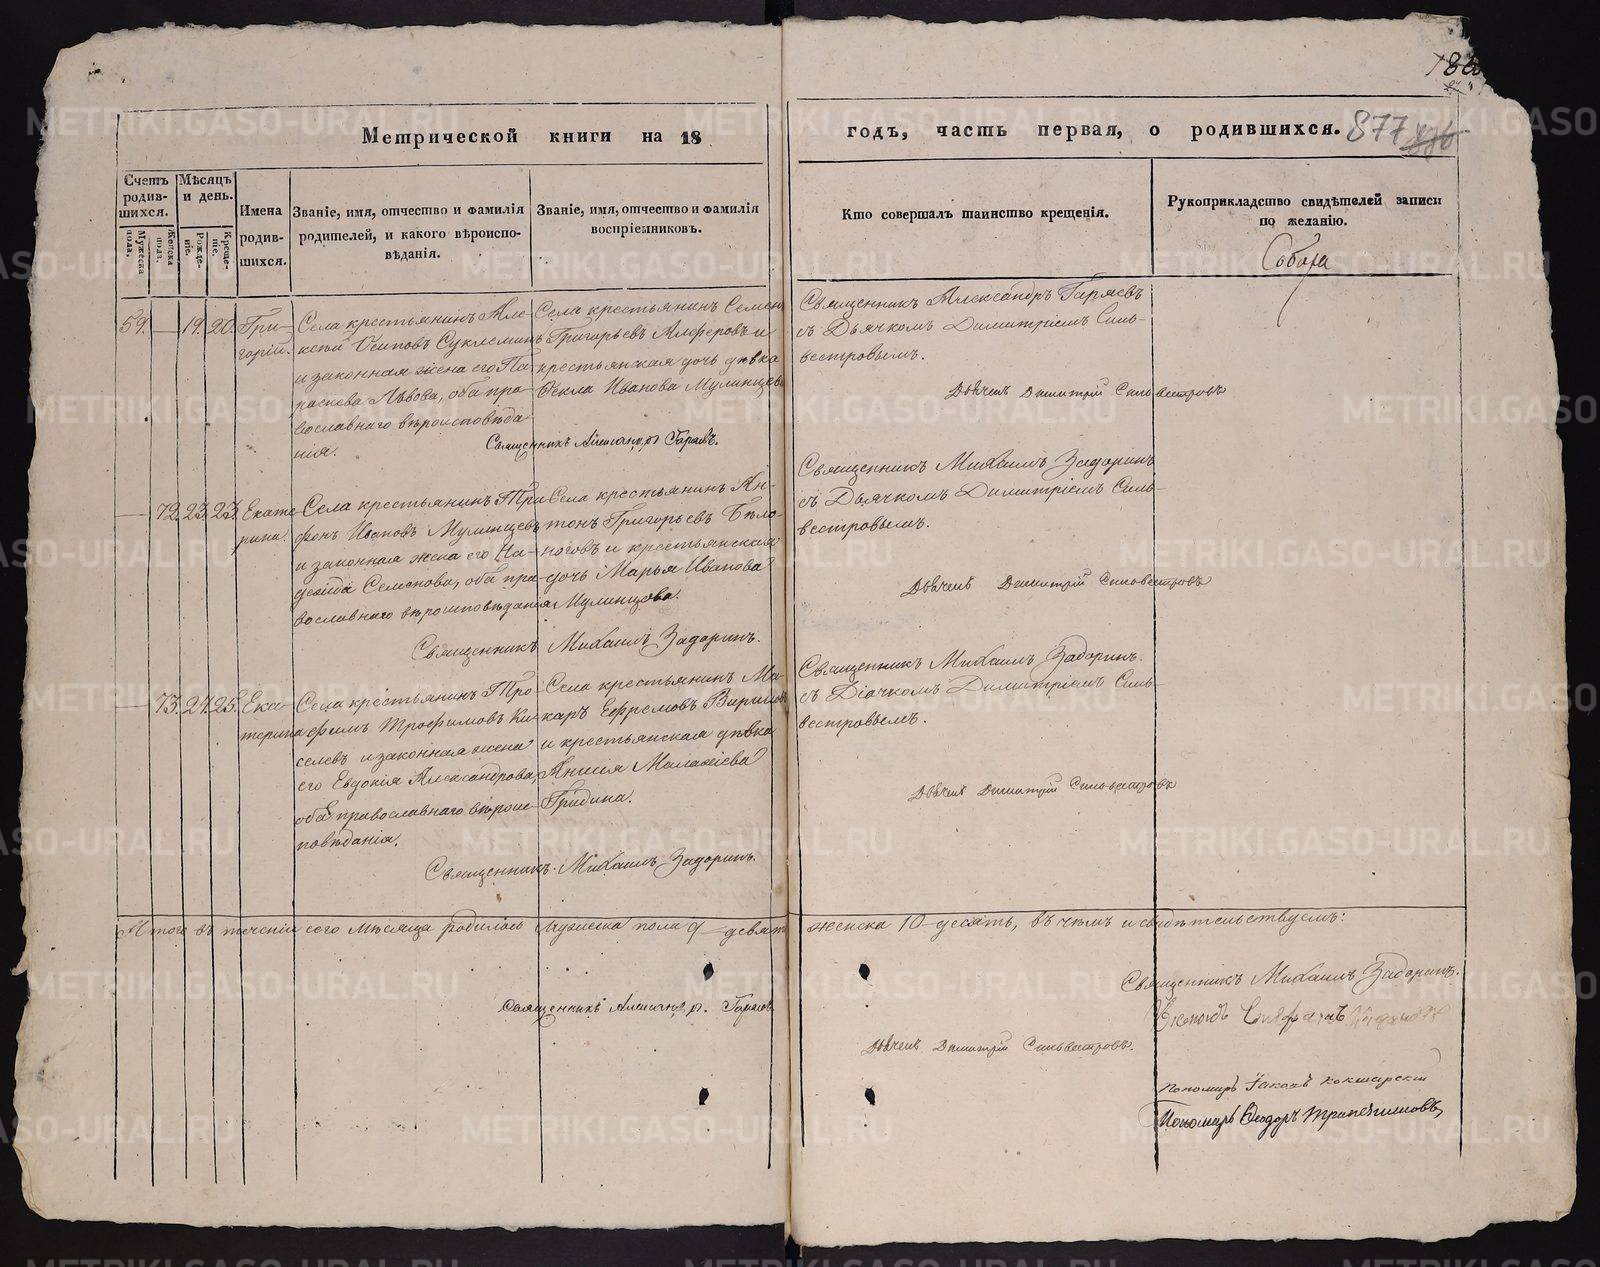 Метрической книги на 18
годъ, часть первая, о родившихся.
877
Счетъ родив-
шихся.
Мужеска пола.
Женска пола.
Мѣсяцъ и день.
Рожде-
нія.
Креще-
нія.
Имена
родив-
шихся.
Званіе, имя, отчество и фамилія
родителей, и какого вѣроиспо-
вѣданія.
Званіе, имя, отчество и фамилія
воспріемниковъ.
Кто совершалъ таинство крещенія.
Рукоприкладство свидѣтелей записи
по желанію.
59. — 19. 20.
Гри-
горій.
Села крестьянинъ Але-
ксѣй Осиповъ
и законная жена его Па-
раскева Львова, оба пра-
вославнаго вѣроисповѣда-
нія.
Села крестьянинъ Семенъ
Григорьевъ Алферовъ и
крестьянская дочь дѣвка
Ѳекла Иванова Мулинцева
Священникъ Александръ Гаряевъ.
Священникъ Александръ Гаряевъ
съ Дьячкомъ Димитріемъ Силь-
вестровымъ.
Дьячекъ Димитрій Сильвестровъ
— 72. 23. 23.
Екате-
рина.
Села крестьянинъ Три-
фонъ Ивановъ Мулинцевъ
и законная жена его На-
дежда Семенова, оба пра-
вославнаго вѣроисповѣданія
Села крестьянинъ Ан-
тонъ Григорьевъ Бѣло-
ноговъ и крестьянская
дочь Марья Иванова
Мулинцова.
Священникъ Михаилъ Задоринъ.
Священникъ Михаилъ Задоринъ
съ Дьячкомъ Димитріемъ Силь-
вестровымъ.
Дьячекъ Димитрій Сильвестровъ
— 73. 24. 25.
Ека-
терина
Села крестьянинъ Тро-
фимъ Трофимовъ Ки-
селевъ и законная жена
его Евдокія Александрова,
оба православнаго вѣроис-
повѣданія.
Села крестьянинъ Ма-
каръ Ефремовъ
и крестьянская дѣвка
Анисія Малахіева
Гридина.
Священникъ Михаилъ Задоринъ.
Священникъ Михаилъ Задоринъ.
съ Діачкомъ Димитріемъ Силь-
вестровымъ.
Дьячекъ Димитрій Сильвестровъ
Итого въ теченіи сего мѣсяца родилось мужеска пола 9 девять
женска 10 десять, въ чемъ и свидѣтельствуемъ:
Священникъ Михаилъ Задоринъ.
Священникъ Александръ Гаряевъ
Дьячекъ Димитрій Сильвестровъ.
Пономарь Іаковъ Кокшарскій
Пономарь Ѳеодоръ
METRIKI.GASO-URAL.RU